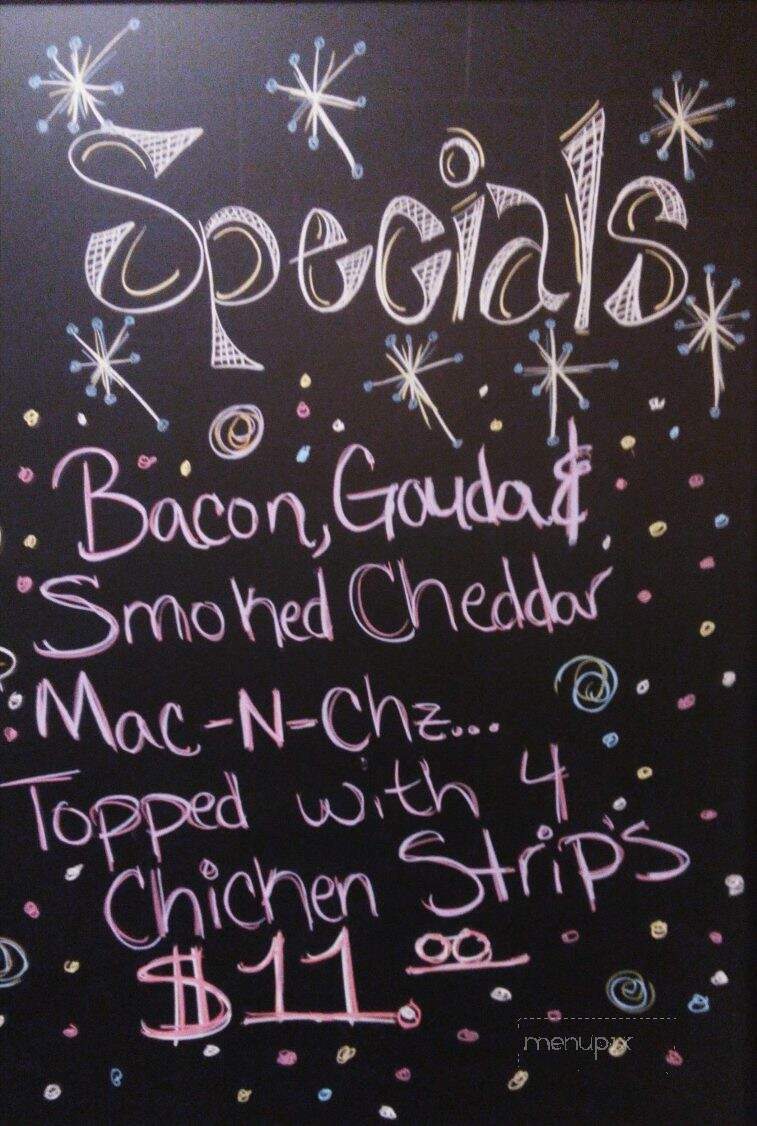 Specials
Bacon, Gouda &
Smoked Cheddar
Mac-N-Chz...
Topped with 4
Chicken Strip's
$11.00
menupix